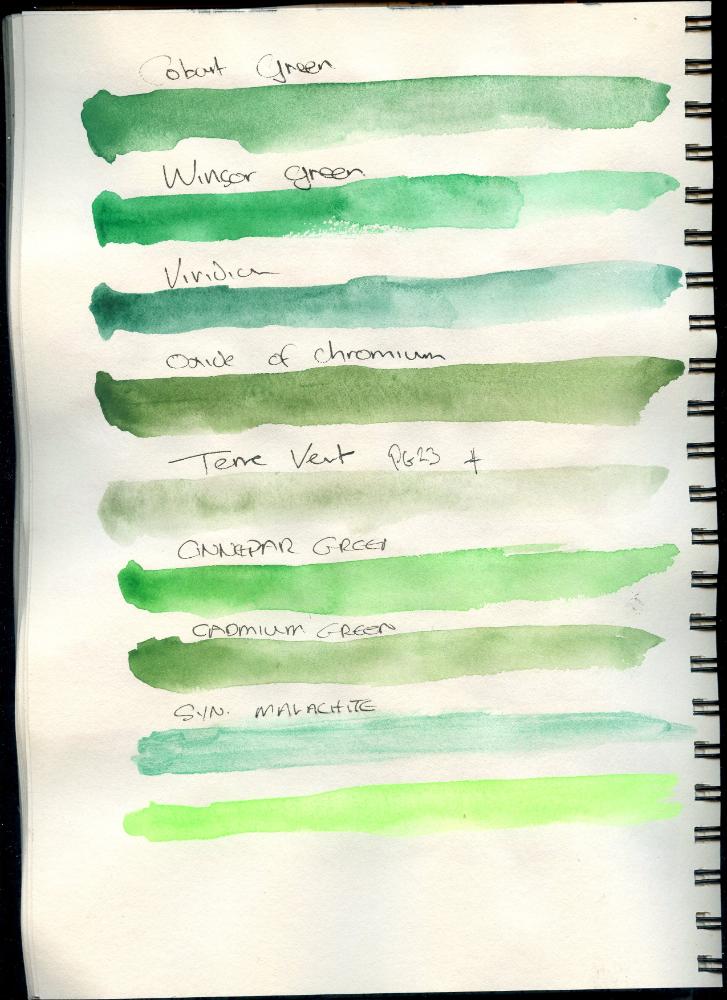 Cobalt Green
Winsor green
Viridian
Oxide of chromium
Terre Vert PG23 #
CINNEBAR GREEN
CADMIUM GREEN
SYN. MALACHITE